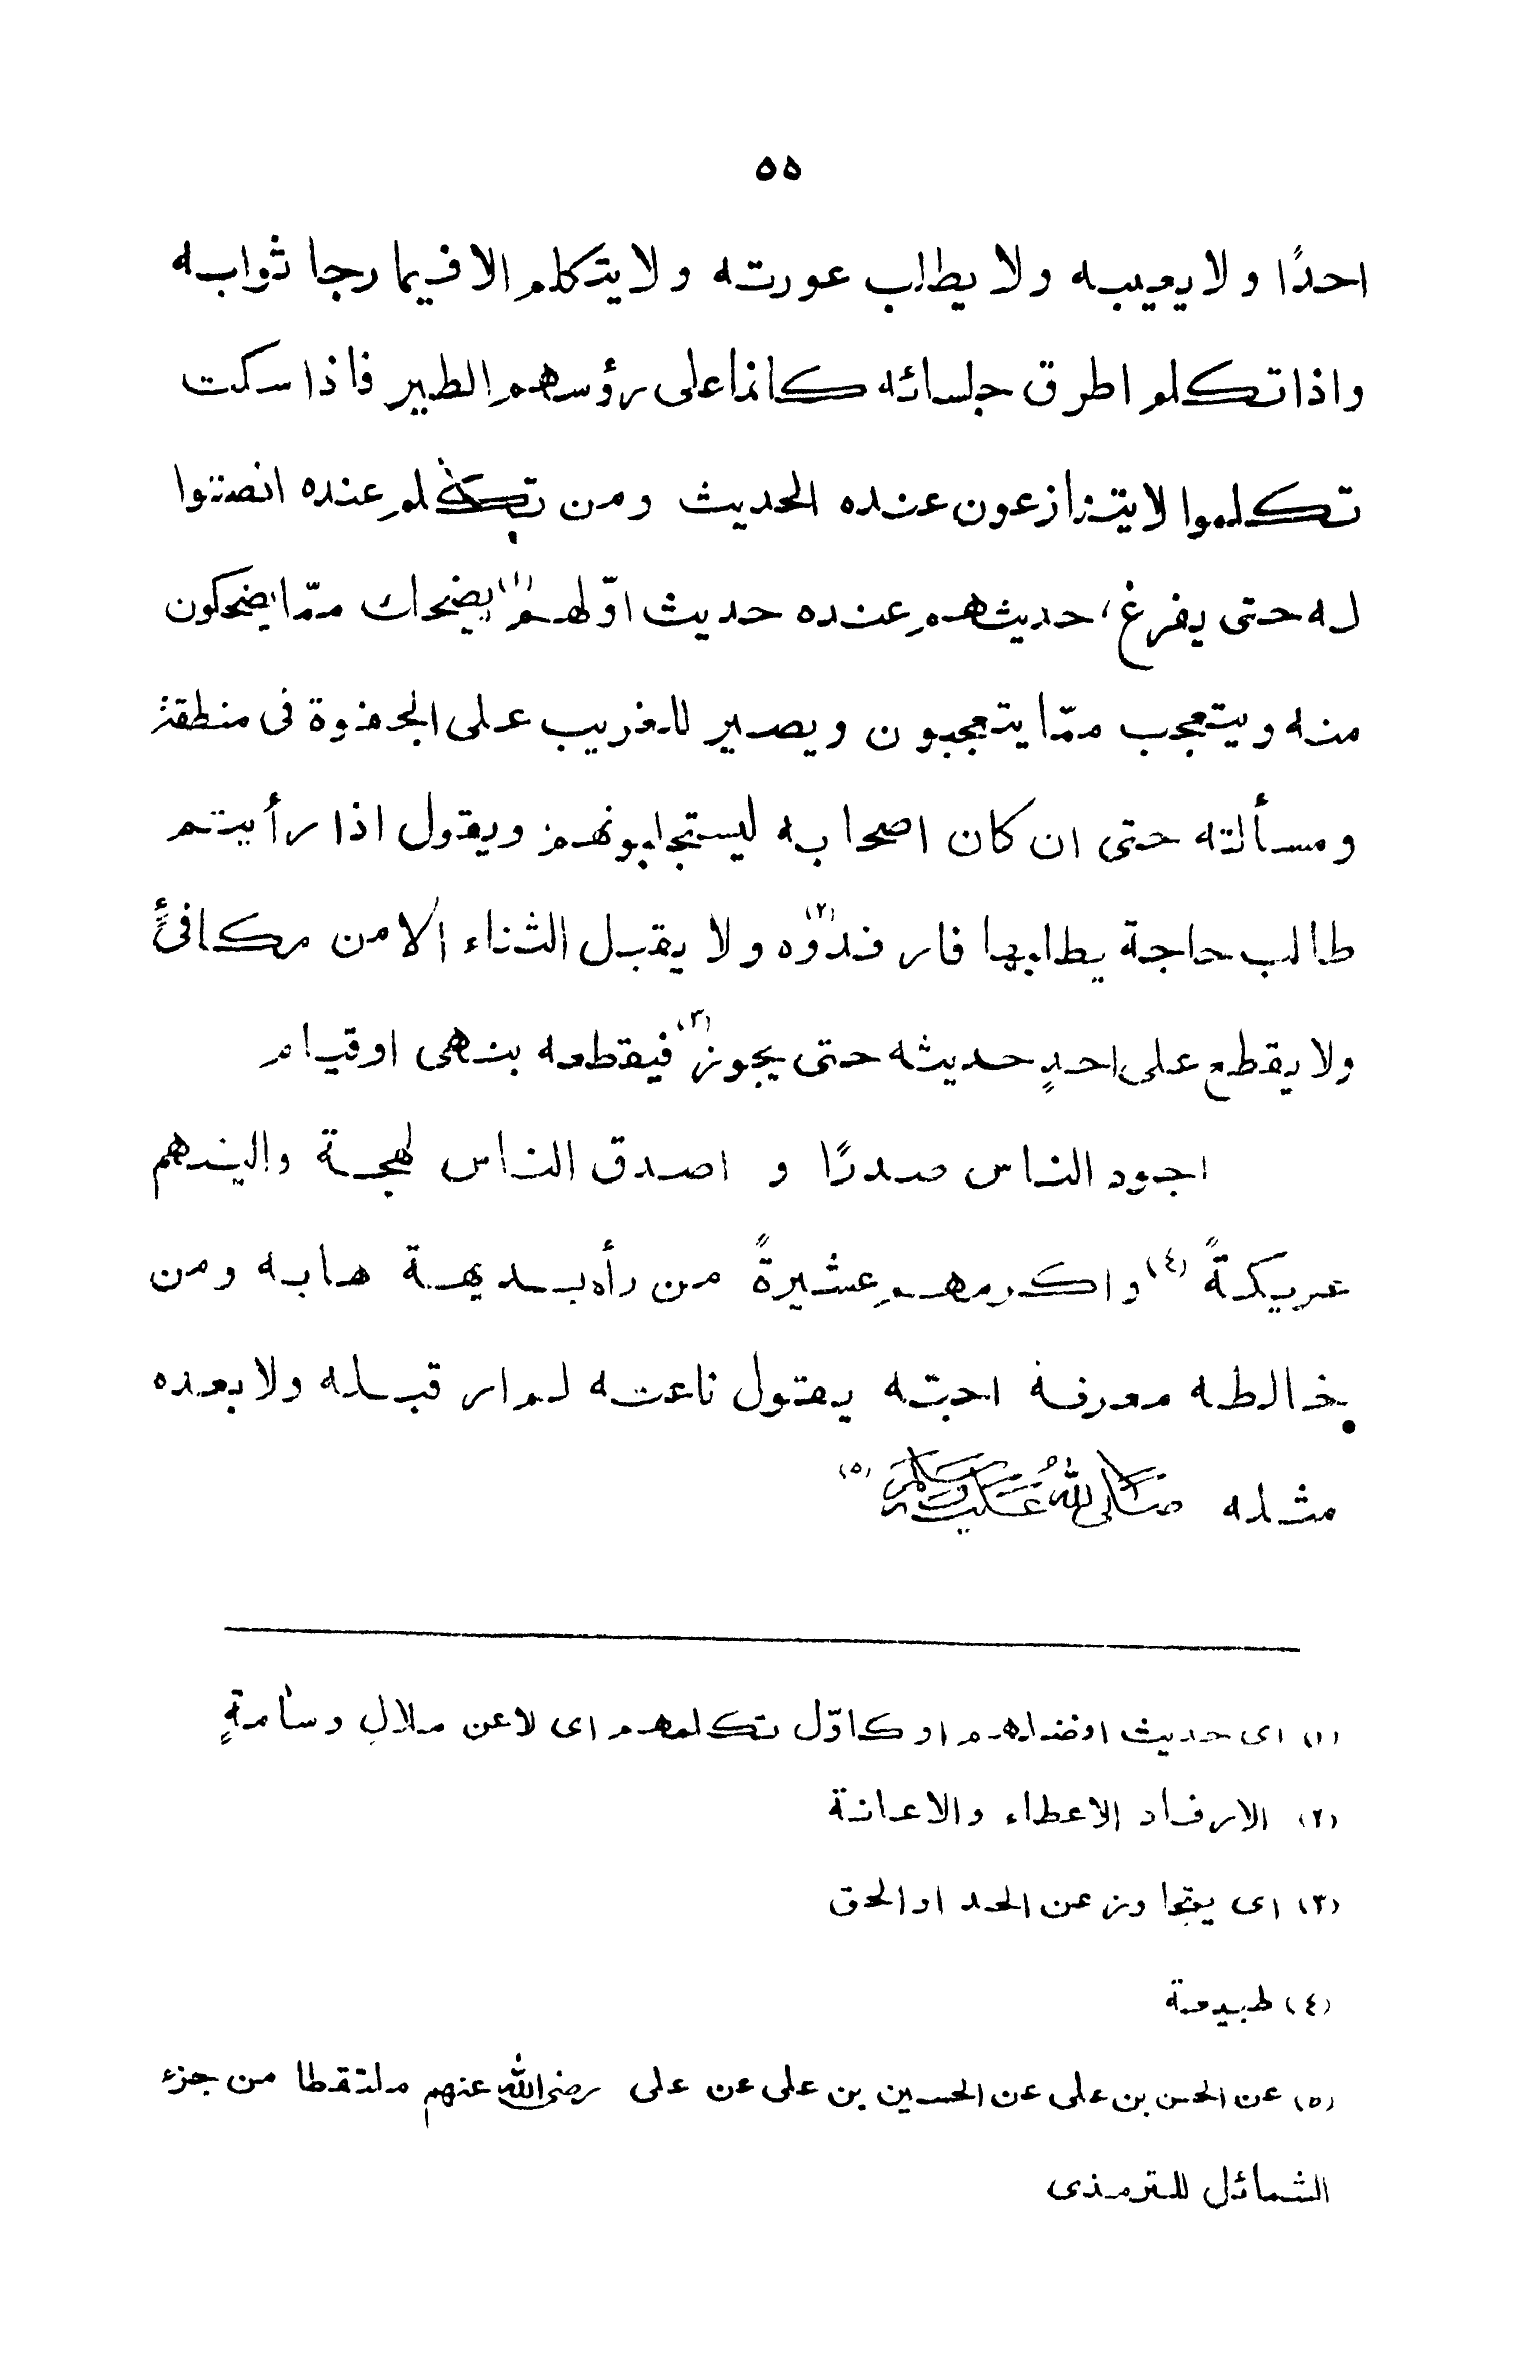 ٥٥
احدًا ولا يعيبه ولا يطلب عورته ولا يتكلم الا فيما رجا ثوابه
واذا تكلم اطرق جلسائه كانما على رؤسهم الطير فاذا سكت
تكلموا لا يتنازعون عنده الحديث ومن تكلم عنده انصتوا
له حتى يفرغ، حديثهم عنده حديث اوّلهم (١) يضحك ممّا يضحكون
منه ويتعجب ممّا يتعجبون ويصبر للغريب على الجفوة فى منطقة
ومسألته حتى ان كان اصحابه ليستجلبونهم ويقول اذا رأيتم
طالب حاجة يطلبها فارفدوه (٢) ولا يقبل الثناء الا من مكافئٍ
ولا يقطع على احدٍ حديثه حتى يجوز (٣) فيقطعه بنهى او قيام
اجود الناس صدرًا و اصدق الناس لهجة والينهم
عريكةً (٤) واكرمهم عشيرةً من رأه بديهة هابه ومن
خالطه معرفة احبّه يقول ناعته لم ار قبله ولا بعده
مثله صَلَّى اللهُ عَلَيْهِ وَسَلَّمَ (٥)
(١) اى حديث افضلهم او كاوّل تكلمهم اى لا عن ملالٍ وسأمةٍ
(٢) الارفاد الاعطاء والاعانة
(٣) اى يتجاوز عن الحد او الحق
(٤) طبيعة
(٥) عن الحسن بن على عن الحسين بن على عن على رضى الله عنهم ملتقطا من جزء
الشمائل للترمذى